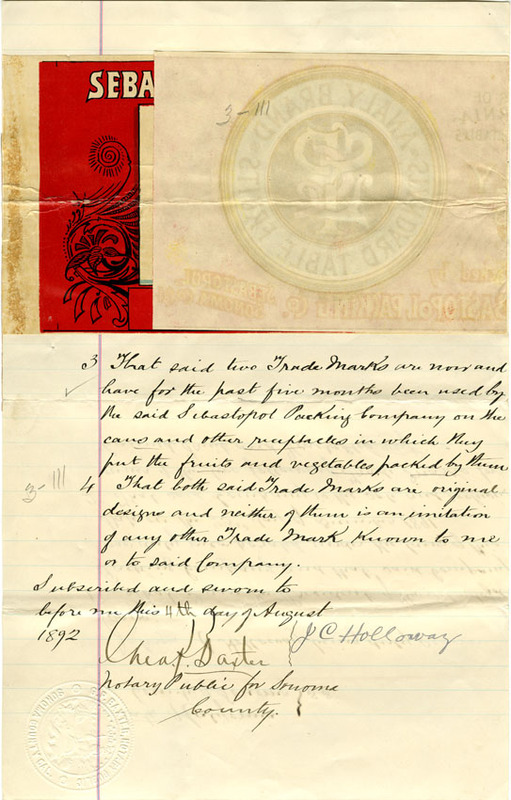 SEBA
3-111
3 That said two Trade Marks are now and
have for the past five months been used by
the said Sebastopol Packing Company on the
cans and other receptacles in which they
put the fruits and vegetables packed by them
3-111
4 That both said Trade Marks are original
designs and neither of them is an imitation
of any other Trade Mark known to me
or to said Company.
Subscribed and sworn to
before me this 4th day of August
1892
J C Holloway
Notary Public for Sonoma
County.